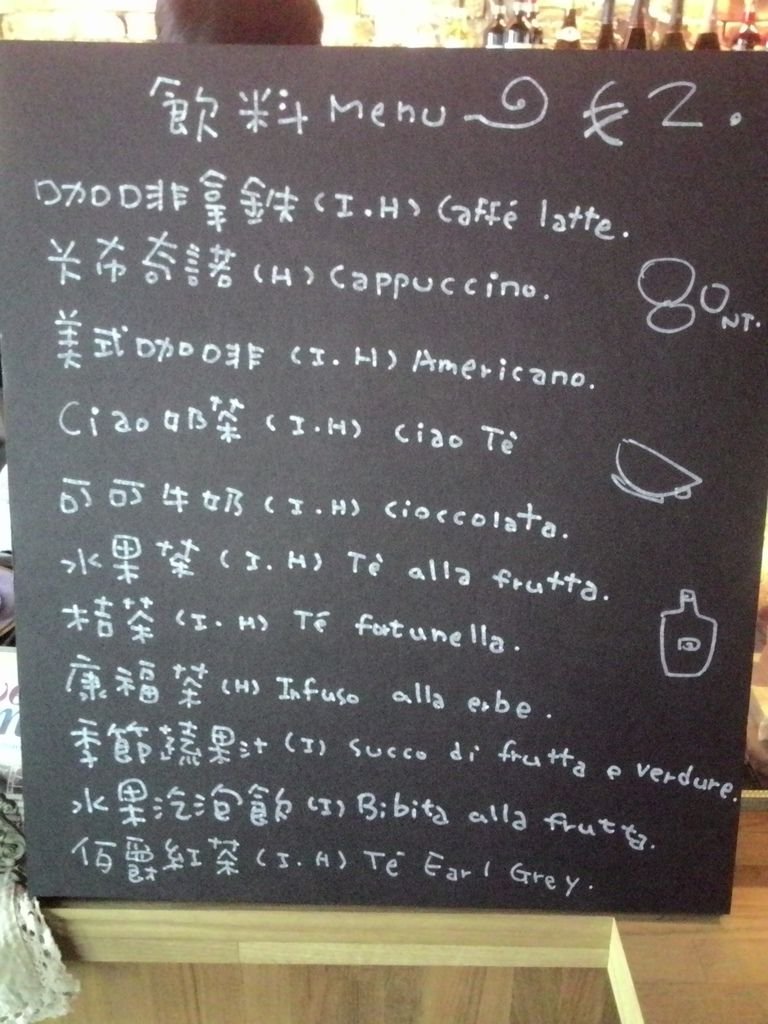 飲料 Menu € 2.
咖啡拿鐵 (I.H) Caffé latte.
卡布奇諾 (H) Cappuccino.
80 NT.
美式咖啡 (I.H) Americano.
Ciao 奶茶 (I.H) Ciao Tè
可可牛奶 (I.H) Cioccolata.
水果茶 (I.H) Tè alla frutta.
桔茶 (I.H) Té fortunella.
康福茶 (H) Infuso alla erbe.
季節蔬果汁 (I) Succo di frutta e verdure.
水果汽泡飲 (I) Bibita alla frutta.
佰爵紅茶 (I.H) Té Earl Grey.